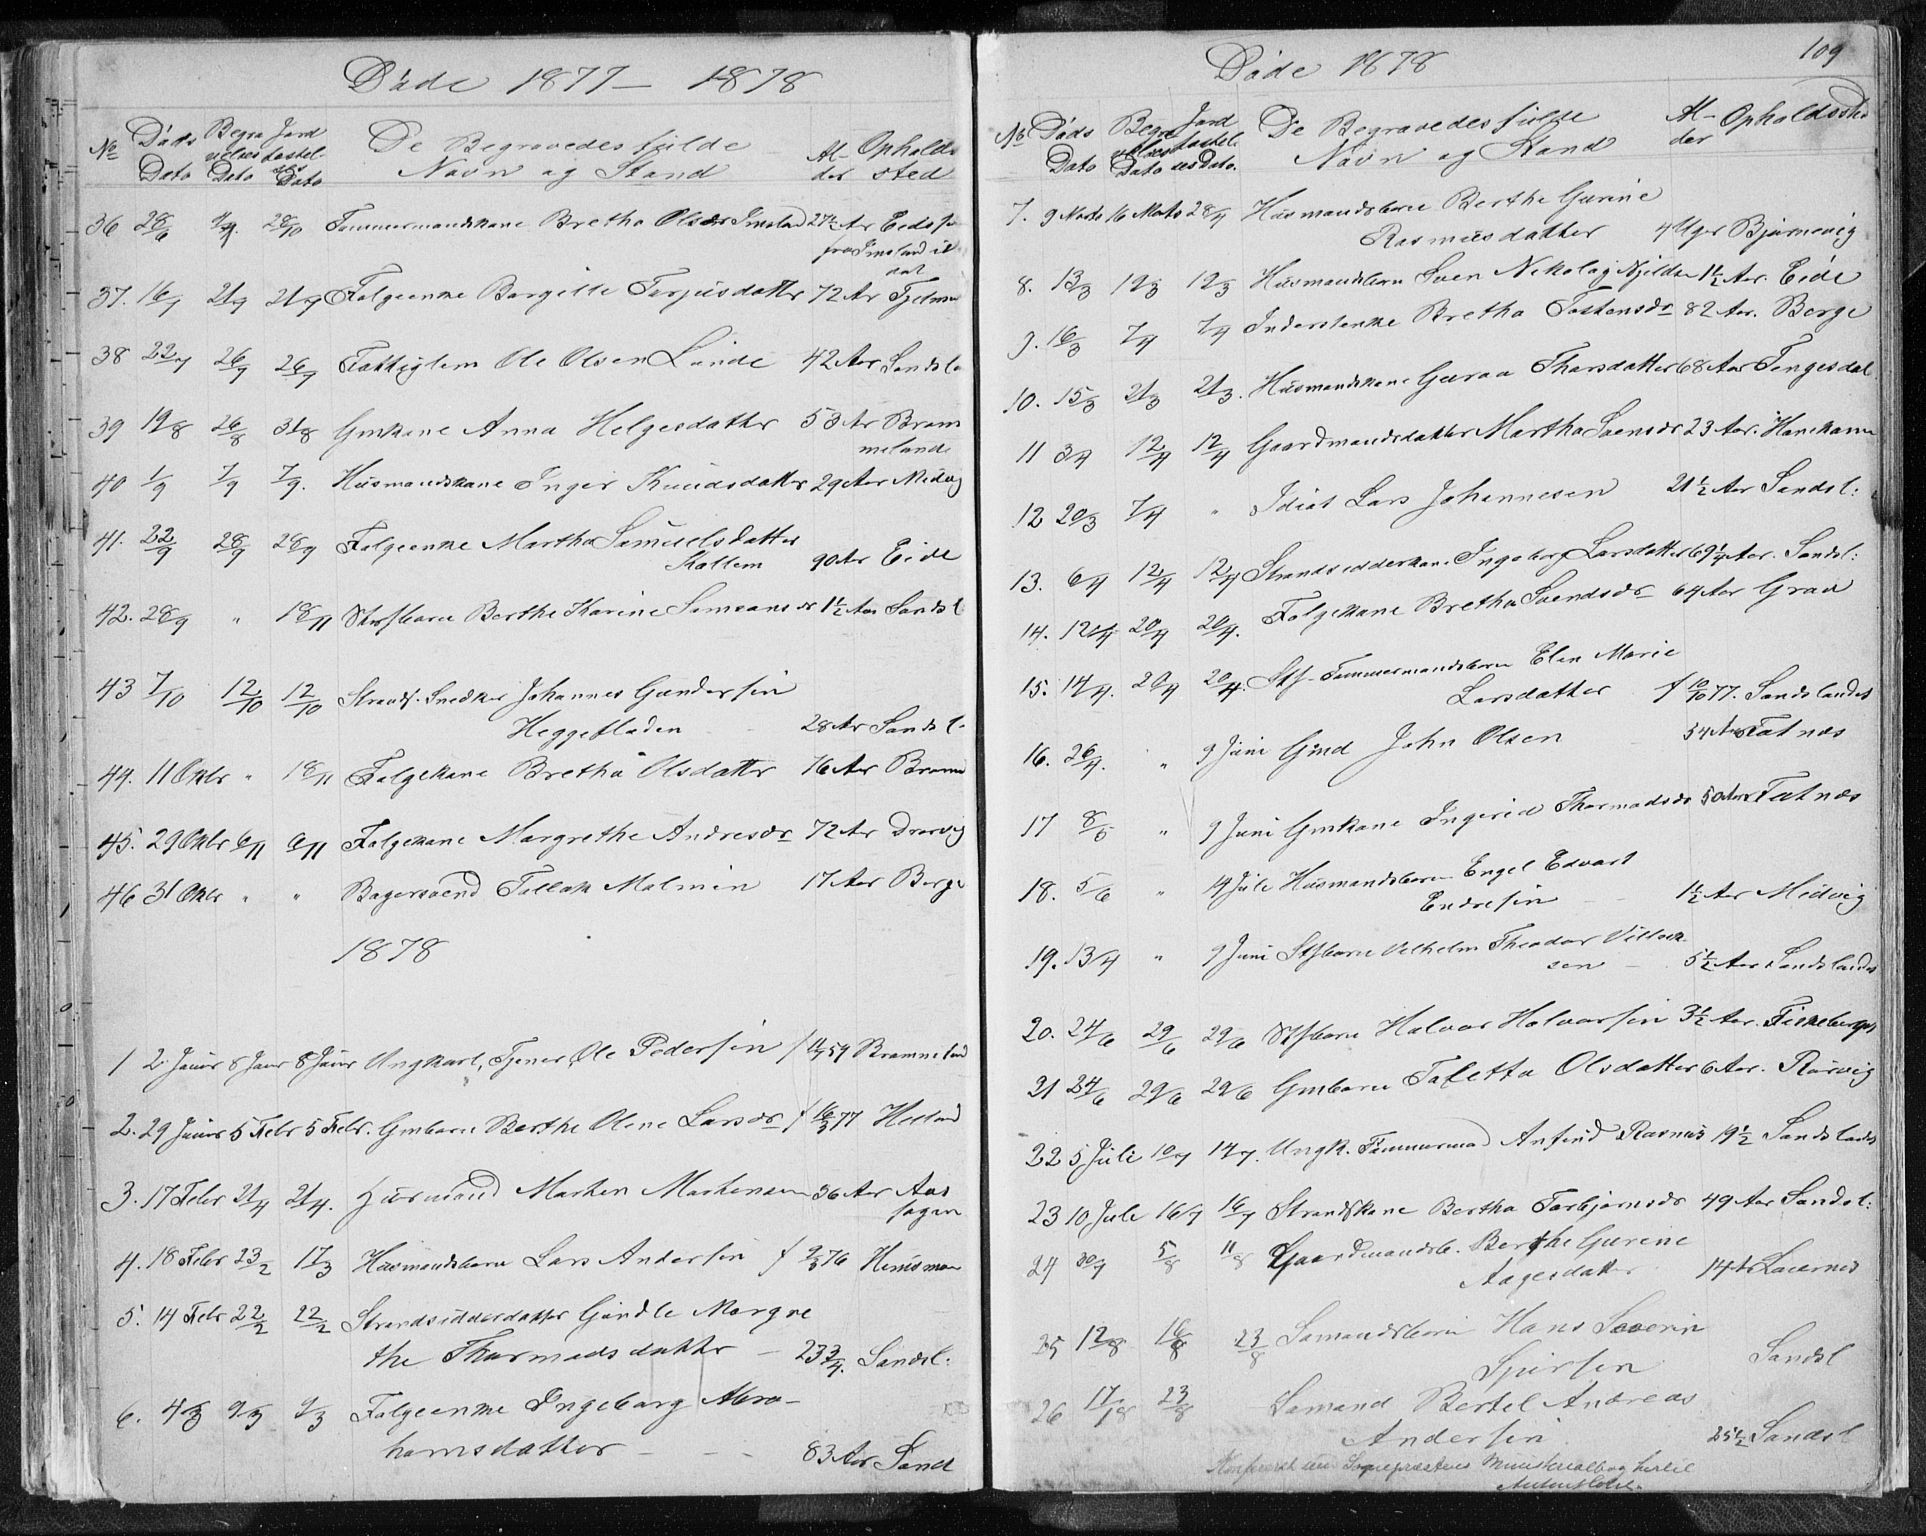 Døde 1877 — 1878
No Døds Dato Begravelses Dato Jordfæstelses Dato De Begravedes fulde Navn og Stand Alder Opholdssted
36 28/6 28/10 Tømmermandskone Bretha Olsdr Imsland 27½ Aar
fra Imsland
37. 16/7 21/7 21/7 Følgeenke Borgille Terjusdatter 72 Aar
38 22/7 26/7 26/7 Fattiglem Ole Olsen Lunde 42 Aar Sandsl
39 19/8 26/8 31/8 Gmkone Anna Helgesdatter 53 Ar Bram
melande
40 1/9 7/9 7/9. Husmandskone Inger Knudsdatter 29 Aar Medvig
41. 22/9 28/9 28/9 Følgeenke Martha Samuelsdatter
Kallem 90 Aar Eide
42. 28/9 " 18/11 Strsfbarn Berthe Karine Samsonsdr 1½ Aar Sandsl
43 7/10 12/10 12/10 Strandf. Snedker Johannes Gundersen
Heggefladen 28 Ar Sandsl.
44. 11 Oktbr " 18/11 Følgekone Bretha Olsdatter 76 Aar Bramm
45. 29 Oktbr 6/11 6/11 Følgekone Margrethe Andresdr 72 Aar Drarvig
46 31 Oktbr " " Bagersvend Tollak Malmin 17 Aar Berge
1878
1 2. Januar 8 Januar 8 Januar Ungkarl, Tjener Ole Pedersen f 59 Brammeland
2. 29 Januar 5 Febr 5 Febr. Gmbarn Berthe Olene Larsdr f 16/3 77 Helland
3. 17 Febr 21/4 21/4. Husmand Morten Mortensen 36 Aar Aas
fagen
4. 18 Febr 23/2 17/3 Husmandsbarn Lars Andersen f 9/3 76
5. 14 Febr 22/2 22/2 Strandsidderdatter Gundle Margre
the Thormodsdatter — 23¾. Sandsl:
6. 4/3 9/3 9/3 Følgeenke Ingeborg Abra-
hamsdatter — — — 83 Aar Sand
109
Døde 1878
No Døds Dato Begravelses Dato Jordfæstelses Dato. De Begravedes fulde Navn og Stand Alder Opholdssted
7. 9 Marts 16 Marts 28/4 Husmandsbarn Berthe Gurine
Rasmusdatter 4 Uger Bjørnevig
8. 13/3 19/3 19/3 Husmandsbarn Sven Nekolai 1½ Aar. Eide
9. 16/3 7/4 7/4 Inderstenke Bretha Tostensdr 82 Aar. Berge
10. 15/3 21/3 21/3. Husmandskone Guroa Thorsdatter 68 Aar Tengesdal
11 3/4 12/4 12/4 Gaardmandsdatter Martha Svensdr 23 Aar. Hanekam
12 20/3 7/4 " Idiot Lars Johannesen 21½ Aar Sandsl:
13. 6/4 12/4 12/4 Strandsidderkone Ingeborg Larsdatter 69¼ Aar. Sandsl:
14. 12/4 20/4 20/4. Følgekone Bretha Svendsdr 64 Aar Grav
15. 14/4. 20/4 20/4. Stsf. Tømmermandsbarn Elen Marie
Larsdatter f 10/10 77. Sandslandet
16. 26/4. " 9 Juni Gmd John Olsen 54 Aar Fatnæs
17 8/5 " 9 Juni Gmkone Ingerid Thormodsdr 50 Aar Fatnæs
18. 5/6 " 14 Juli Husmandsbarn Engel Edvart
Endresen 1½ Aar Medvig
19. 13/4 " 9 Juni Stsfbarn Velhelm Theodor Villock
sen 5½ Aar Sandslandet
20. 24/6 29/6 29/6 Stsfbarn Halvor Halvorsen 3½ Aar.
21 24/6 29/6 29/6 Gmbarn Taletta Olsdatter 6 Aar. Rørvig
22 5 Juli 10/7 14/7. Ungk. Tømmermand Anfind Rasmus 19½ Sandslandet
23 10 Juli 16/7 16/7 Strandfkone Bertha Torbjørnsdr 49 Aar Sandsl:
24 30/7 5/8 11/8 Gaardmandsb. Berthe Gurine
Aagesdatter 14
25 12/8 16/8 23/8 Sømandsbarn Hans Severin
Spersen Sandsl
26 17/8 23/8 Sømand Bertel Andreas
Andersen 25½ Sandsl
Sognepræstens Ministerialbog hertil